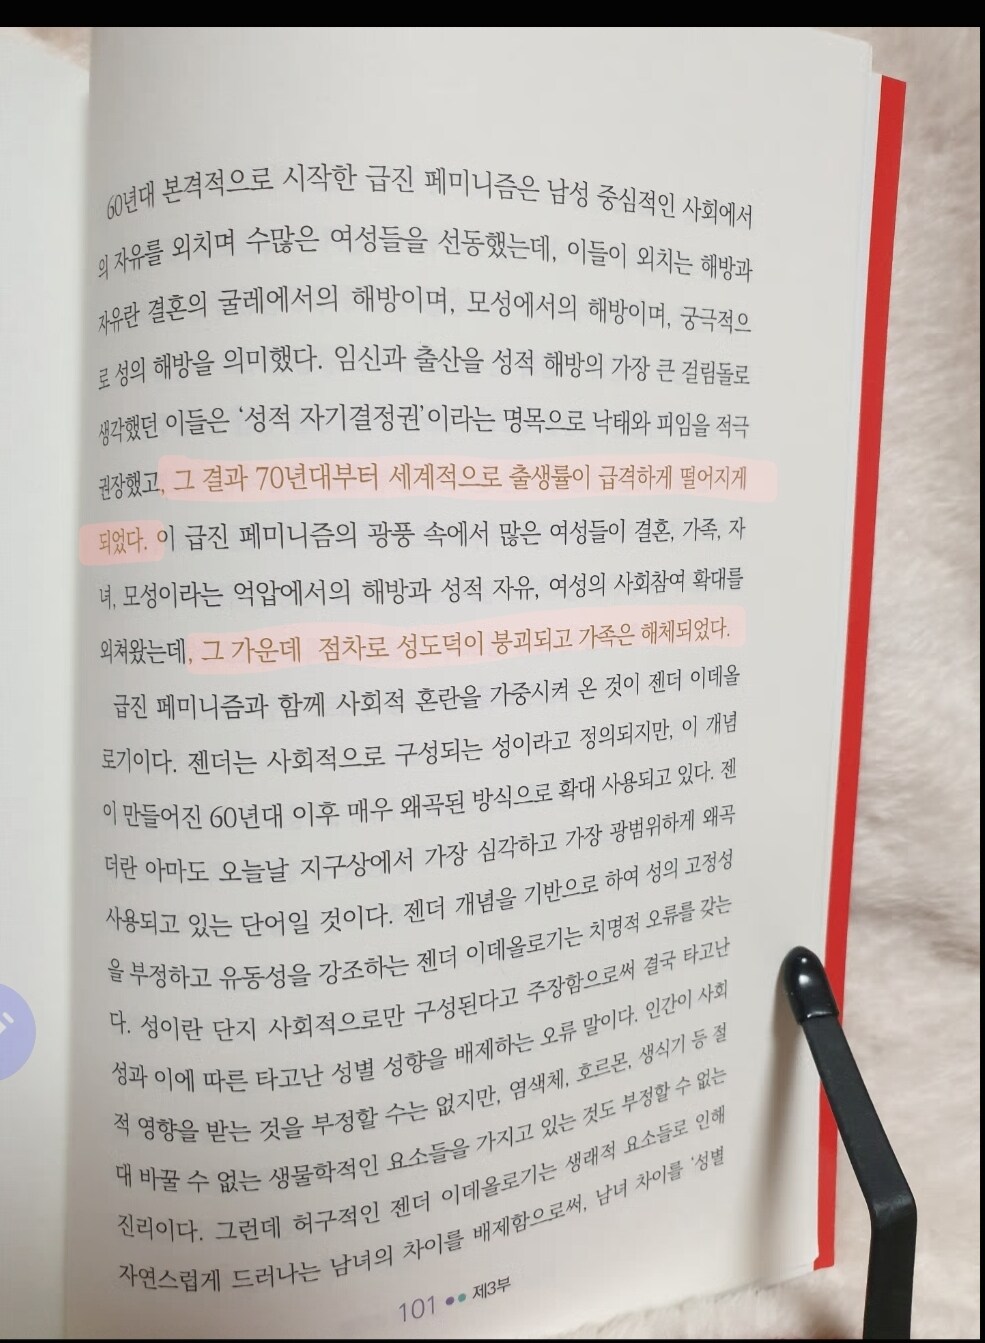 60년대 본격적으로 시작한 급진 페미니즘은 남성 중심적인 사회에서
의 자유를 외치며 수많은 여성들을 선동했는데, 이들이 외치는 해방과
자유란 결혼의 굴레에서의 해방이며, 모성에서의 해방이며, 궁극적으
로 성의 해방을 의미했다. 임신과 출산을 성적 해방의 가장 큰 걸림돌로
생각했던 이들은 ‘성적 자기결정권’이라는 명목으로 낙태와 피임을 적극
권장했고, 그 결과 70년대부터 세계적으로 출생률이 급격하게 떨어지게
되었다. 이 급진 페미니즘의 광풍 속에서 많은 여성들이 결혼, 가족, 자
녀, 모성이라는 억압에서의 해방과 성적 자유, 여성의 사회참여 확대를
외쳐왔는데, 그 가운데 점차로 성도덕이 붕괴되고 가족은 해체되었다.
급진 페미니즘과 함께 사회적 혼란을 가중시켜 온 것이 젠더 이데올
로기이다. 젠더는 사회적으로 구성되는 성이라고 정의되지만, 이 개념
이 만들어진 60년대 이후 매우 왜곡된 방식으로 확대 사용되고 있다. 젠
더란 아마도 오늘날 지구상에서 가장 심각하고 가장 광범위하게 왜곡
사용되고 있는 단어일 것이다. 젠더 개념을 기반으로 하여 성의 고정성
을 부정하고 유동성을 강조하는 젠더 이데올로기는 치명적 오류를 갖는
다. 성이란 단지 사회적으로만 구성된다고 주장함으로써 결국 타고난
성과 이에 따른 타고난 성별 성향을 배제하는 오류 말이다. 인간이 사회
적 영향을 받는 것을 부정할 수는 없지만, 염색체, 호르몬, 생식기 등 절
대 바꿀 수 없는 생물학적인 요소들을 가지고 있는 것도 부정할 수 없는
진리이다. 그런데 허구적인 젠더 이데올로기는 생래적 요소들로 인해
자연스럽게 드러나는 남녀의 차이를 배제함으로써, 남녀 차이를 ‘성별
101 ●● 제3부